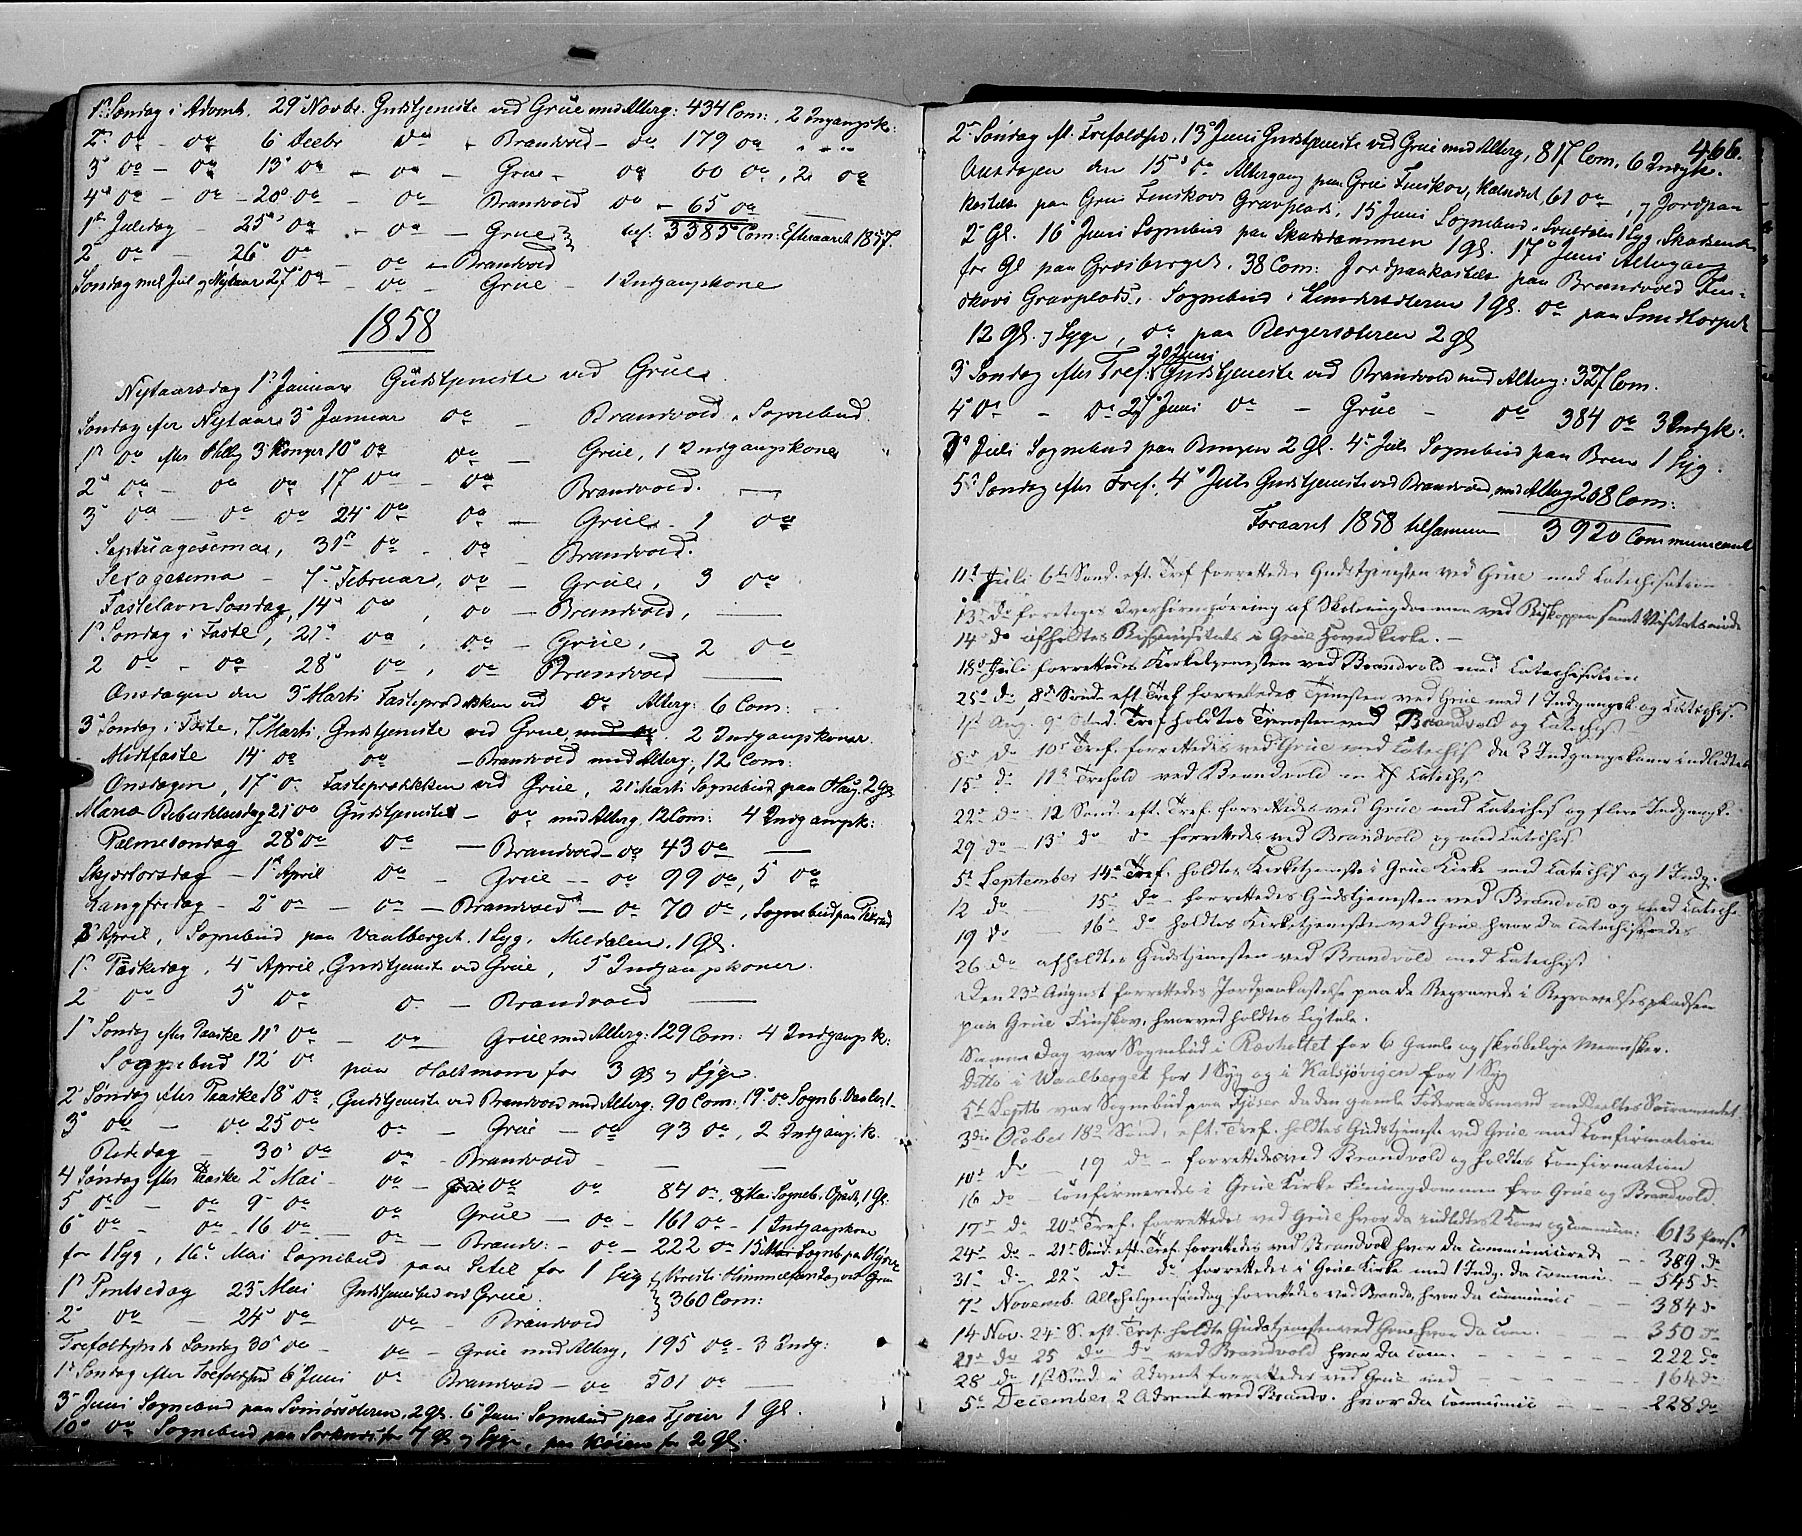 1e Søndag i Advent. 29 Novbr. Gudstjeneste ved Grue med Alterg: 434 Com:, 2 Ingangsk:
2n do - do 6 Decbr do - Brandvold - do 179 do
3 do - do 13 do - do - Grue - do 60 do, 2 do
4d do - do - 20 do - do Brandvold do - 65 do
1n Juledag - 25 do - do - Grue tils. 3385 Com: Efteraaret 1857.
2 do - 26 do - do - Brandvold
Søndag mel Jul og Nytaar 27 do - do - Grue - 1 Indgangskone
1858
Nytaarsdag 1 Januar Gudstjeneste ved Grue
Søndag efter Nytaar 3 Januar do - Brandvold, Sognebud
1n do efter Hellig 3 Konger 10 do do - Grue, 1 Indgangskone
2 do - do do 17 do - do Brandvold. —
3 do - do do 24 do do - Grue - 1 do
Septuagesima, 31 do - do - Brandvold.
Sexagesima - 7 Februar, do - Grue, 3 do
Fastelavn Søndag, 14 do , do - Brandvold, —
1n Søndag i Faste, 21 do , do - Grue, 2 do
2 do - do 28 do , do Brandvold —
Onsdagen den 3 Marti Fasteprædiken ved do Alterg: 6 Com:
3 Søndag i Faste, 7 Marti, Gudstjeneste ved Grue, 2 Indgangskoner
Midtfaste 14 do do - Brandvold med Alterg, 12 Com:
Onsdagen, 17 do Fasteprædiken ved Grue, 21 Marti Sognebud paa Haug. 2 Gl
Mariæ Bebudelsesdag 21 do Gudstjeneste - do med Alterg. 12 Com: 4 Indgangsk:
Palmesøndag 28 do do - Brandvold - do 43 do —
Skjærtorsdag - 1 April do - Grue - do 99 do, 5 do
Langfredag - 2 do - do - Brandvold - do 70 do, Sognebud paa
3 April, Sognebud paa Vaalberget. 1 Syg, Mildalen. 1 Gl.
1n Paaskedag, 4 April, Gudstjeneste ved Grue, 5 Indgangskoner
2 do 5 do do - Brandvold —
1n Søndag efter Paaske 11 do - do - Grue med Alterg: 129 Com: 4 Indgangsk:
Sognebud 12 do paa Holtmoen for 3 gl og Syge.
2 Søndag efter Paaske 18 do, Gudstjeneste ved Brandvold med Alterg: 90 Com:, 19 do Sogneb.
3 do - do 25 do do - Grue - do 93 do, 2 Indgangsk.
Bededag - 30 do do - Brandvold - — —
4 Søndag efter Paaske 2 Mai - do - do do 84 do, 8 Mai Sogneb. 1 Gl.
5 do - do - 9 do do Grue - do - 161 do - 1 Indgangskone
6 do - do - 16 do - do - Brandv: - do - 222 do 15 Mai Sogneb. paa
for 1 Syg, 16 Mai Sognebud paa Setil for 1 Syg Kristi Himmelfartsdag ved Grue
1n Pintsedag 23 Mai Gudstjeneste ved Grue. 360 Com:
2 do - 24 do do - Brandvold
Trefoldigheds Søndag 30 do - do - Grue med Alterg, 195 do - 3 Indg:
1n Søndag efter Trefoldighed 6 Juni do Brandvold - do 501 do —
3 Juni Sognebud paa 2 Gl. 6 Juni Sognebud paa Tjoier 1 Gl.
10 do Sognebud paa for 7 gl og Syge, paa Køien for 2 Gl.
466.
2 Søndag ef. Trefoldighed, 13 Juni Gudstjeneste ved Grue med Alterg, 817 Com, 6 Indgk.
Onsdagen den 15 do Altergang paa Grue Finskov, Kalneset, 61 do, og Jordpaa
kastelse paa Grue Finskovs Gravplads. 15 Juni Sognebud, 1 Syg,
2 Gl. 16 Juni Sognebud paa Skasdammen 1 gl. 17 Juni Altergang
for Gl paa Græsberget. 38 Com: Jordpaakastelse paa Brandvold Fin-
skovs Gravplads, Sognebud i 1 Gl. do paa
12 Gl. og Syge, do paa Bergersæteren 2 gl
20 Juni
3 Søndag efter Tref: Gudstjeneste ved Brandvold med Alterg: 327 Com.
4 do - do 27 Juni do - Grue - do 384 do 3 Indgk:
3 Juli Sognebud paa 2 Gl. 4 Juli Sognebud paa Bren 1 Syg.
5 Søndag efter Tref., 4 Juli Gudstjeneste ved Brandvold, med Alterg 268 Com:
Foraaret 1858 tilsammen 3920 Communicant
11te Juli 6te Sønd. eft. Tref forrettedes Gudstjenesten ved Grue med Catechisation
13 do foretoges Overhøring af Skoleungdommen ved Biskoppen samt
14 do afholdtes i Grue Hovedkirke. —
18 Juli forrettedes Kirketjenesten ved Brandvold med Catechisation
25 do 8de Sønd. eft. Tref. forrettedes Tjenesten ved Grue med 1 Indgangsk og Catechis.
1st Aug. 9 Sønd. Tref holdtes Tjenesten ved Brandvold og Catechis
8 do 10 Tref. forrettedes ved Grue med Catechis da 3 Indgangskoner indledtes
15 do 11 Trefold ved Brandvold Catechis,
22 do 12 Sønd. eft. Tref. forrettedes ved Grue med Catechis og flere Indgangsk.
29 do 13 do do forrettedes ved Brandvold og med Catechis
5t September 14 Tref. holdtes Kirketjeneste i Grue Kirke med Catechis og 1 Indg.
12 do - 15 do - forrettedes Gudstjenesten ved Brandvold og med Catech.
19 do - 16 do holdtes Kirketjenesten ved Grue hvor da Catechiseredes
26 do afholdtes Gudstjenesten ved Brandvold med Catechis
Den 23 August forrettedes Jordpaakastelse paa de Begravede i Begravelsespladsen
paa Grue Finskov, hvorved holdtes Ligtale.
Samme Dag var Sognebud i Ravholtet for 6 Gamle og skrøbelige Mennesker.
Ditto i Vaalberget for 1 Syg og i Kalsjøvigen for 1 Syg
5t Septb var Sognebud paa Tjøser da den gamle Føderaadsmand meddeeltes Sacramentet
3die October 18 Sønd. eft. Tref. holdtes Gudstjeneste ved Grue med Confirmation
10 do - 19 do - forrettedes ved Brandvold og holdtes Confirmation
16 do - Confirmeredes i Grue Kirke Finungdommen fra Grue og Brandvold
17 do 20 Tref. forrettedes ved Grue hvor da indledtes 2 Koner og Commun. 613 Pers.
24 do - 21 Sønd. eft. Tref. forrettedes ved Brandvold hvor da communicerede - 389 do
31 do - 22 do do forrettedes i Grue Kirke med 1 Indg. da commu. - 545 do
7 Novemb. Allehelgensøndag forrettedes ved Brandv, hvor da communic - - 384 do
14 Nov. 24 S. eft. Tref. holdtes Gudstjenesten ved Grue hvor da com. - - - 350 do
21 do 25 do do ved Brandvold hvor da com. - - - - 222 do
28 do 1st Sønd i Advent forrettedes ved Grue med - - - - 164 do
5 December, 2 Advent ved Brandv. hvor da communic - - - 228 do